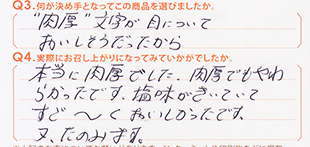 Q3.何が決め手となってこの商品を選びましたか。
"肉厚"文字が目について
おいしそうだったから
Q4.実際にお召し上がりになってみていかがでしたか。
本当に肉厚でした、肉厚でもやわ
らかったです、塩味がきいていて
すご〜くおいしかったです、
又、たのみます。